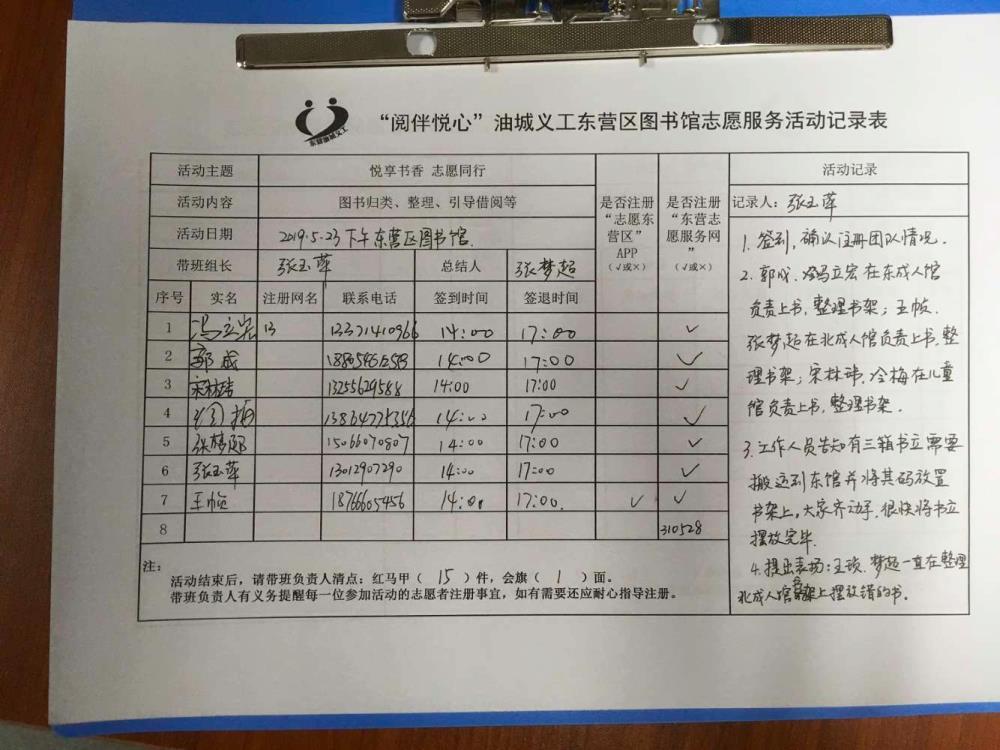 东营油城义工
“阅伴悦心”油城义工东营区图书馆志愿服务活动记录表
活动主题 悦享书香 志愿同行
活动内容 图书归类、整理、引导借阅等
活动日期 2019.5.23下午东营区图书馆.
带班组长 张玉萍 总结人 张梦超
是否注册“志愿东营区”APP（√或×）
是否注册“东营志愿服务网”（√或×）
序号 实名 注册网名 联系电话 签到时间 签退时间
1 冯立宏 13371410966 14:00 17:00 √
2 郭成 14:00 17:00 √
3 宋林玮 13255629588 14:00 17:00 √
4 14:00 17:00 √
5 张梦超 15066070807 14:00 17:00 √
6 张玉萍 13012907290 14:00 17:00 √
7 王帧 18766605456 14:00 17:00. √ √
8 310528
注：
活动结束后，请带班负责人清点：红马甲（ 15 ）件，会旗（ 1 ）面。
带班负责人有义务提醒每一位参加活动的志愿者注册事宜，如有需要还应耐心指导注册。
活动记录
记录人：张玉萍
1. 签到，确认注册团队情况.
2. 郭成、冯立宏在东成人馆
负责上书，整理书架；王帧、
张梦超在北成人馆负责上书，整
理书架；宋林玮、冷梅在儿童
馆负责上书，整理书架.
3. 工作人员告知有三箱书立需要
搬运到东馆并将其码放置
书架上，大家齐动手，很快将书立
摆放完毕.
4. 提出表扬：王帧、梦超一直在整理
北成人馆书架上摆放错的书.